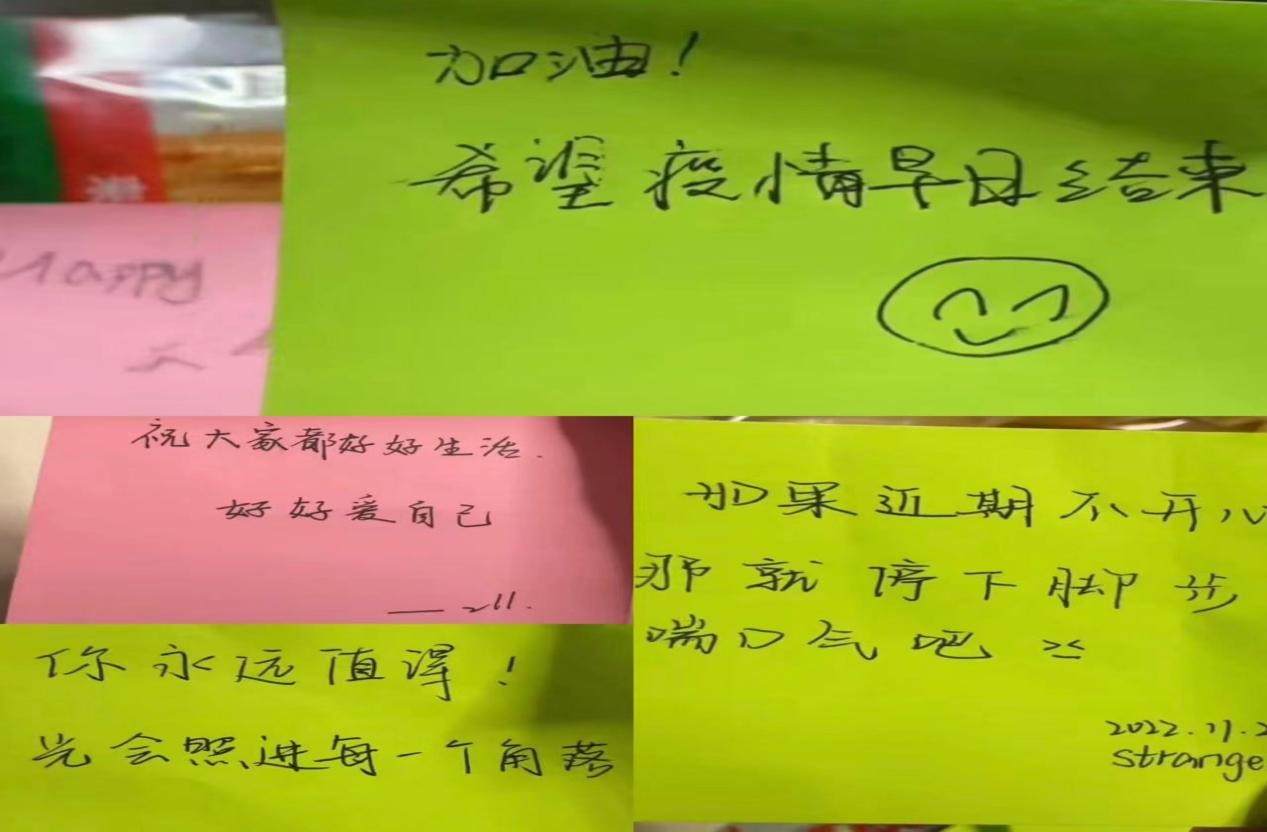 加油！
希望疫情早日结束
Happy
祝大家都好好生活.
好好爱自己
你永远值得！
光会照进每一个角落
如果近期不开心
那就停下脚步
喘口气吧
2022.11.2
strange